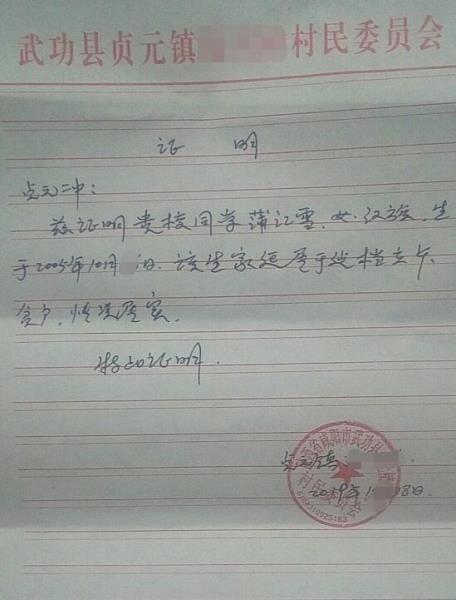 武功县贞元镇 村民委员会
证 明
贞元二中：
兹证明贵校同学蒲江雪，女，汉族，生
于2005年10月 日，该生家庭属于建档立卡
贫户，情况属实。
特此证明。
贞元镇
2019年1 8日
咸阳市武功县
村民委员会